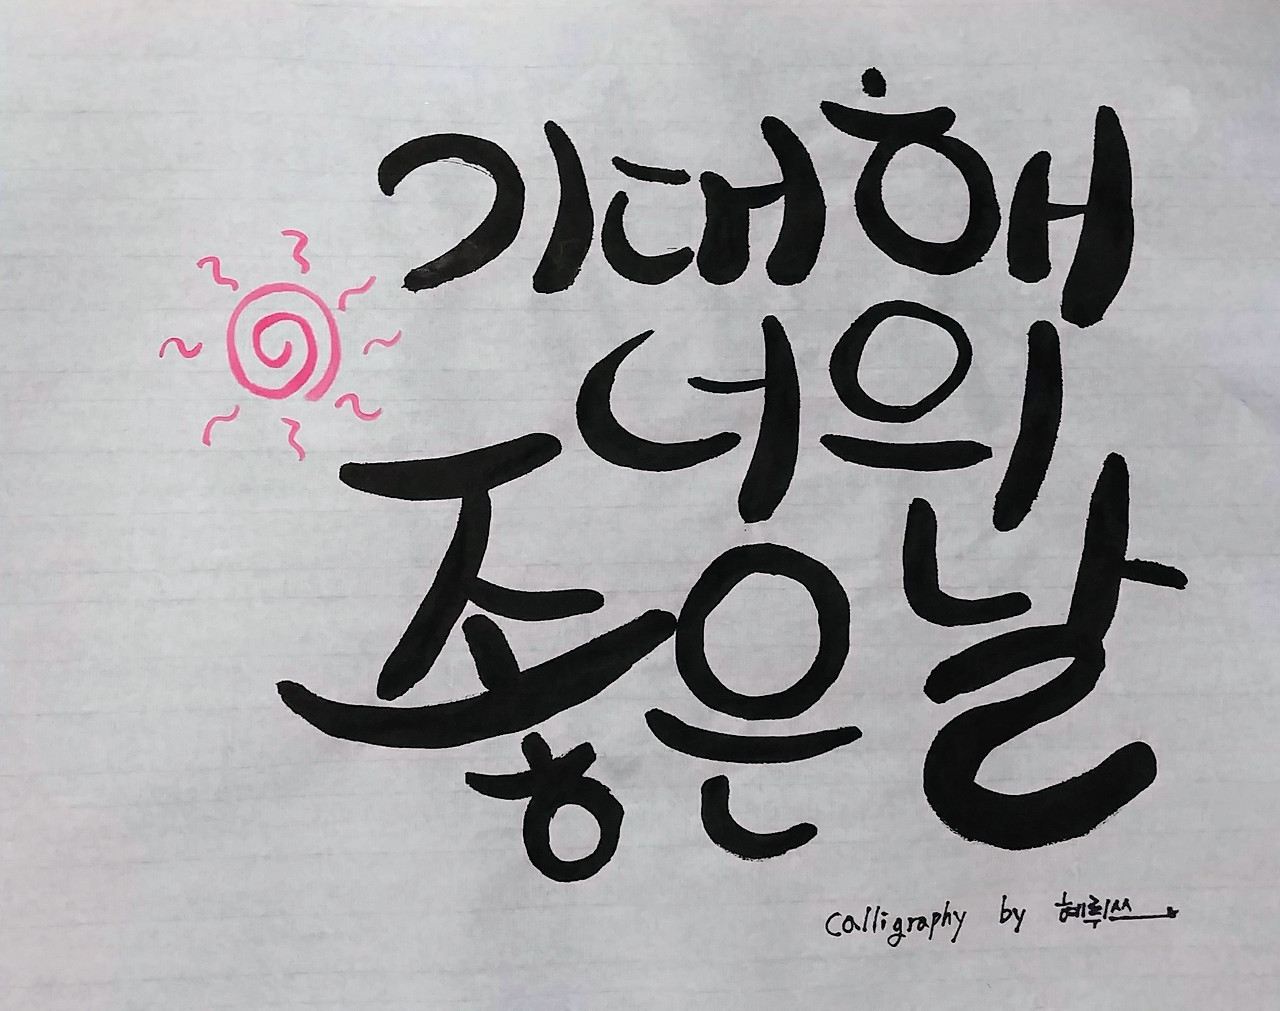 기대해
너의
좋은 날
Calligraphy by 혜뤼쓰